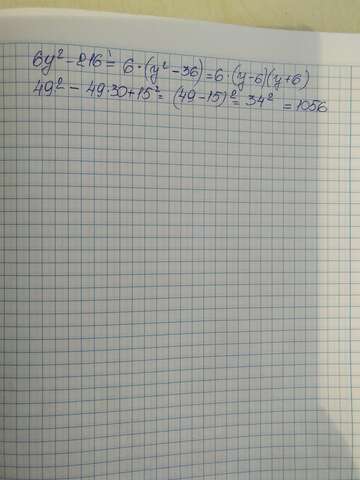 6y² - 216 = 6·(y² - 36) = 6·(y - 6)(y + 6)
49² - 49·30 + 15² = (49 - 15)² = 34² = 1056